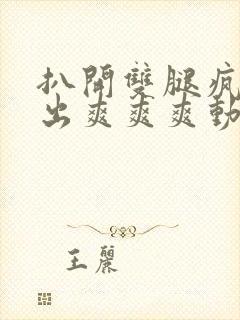 扒開雙腿瘋
出爽爽爽動
王麗